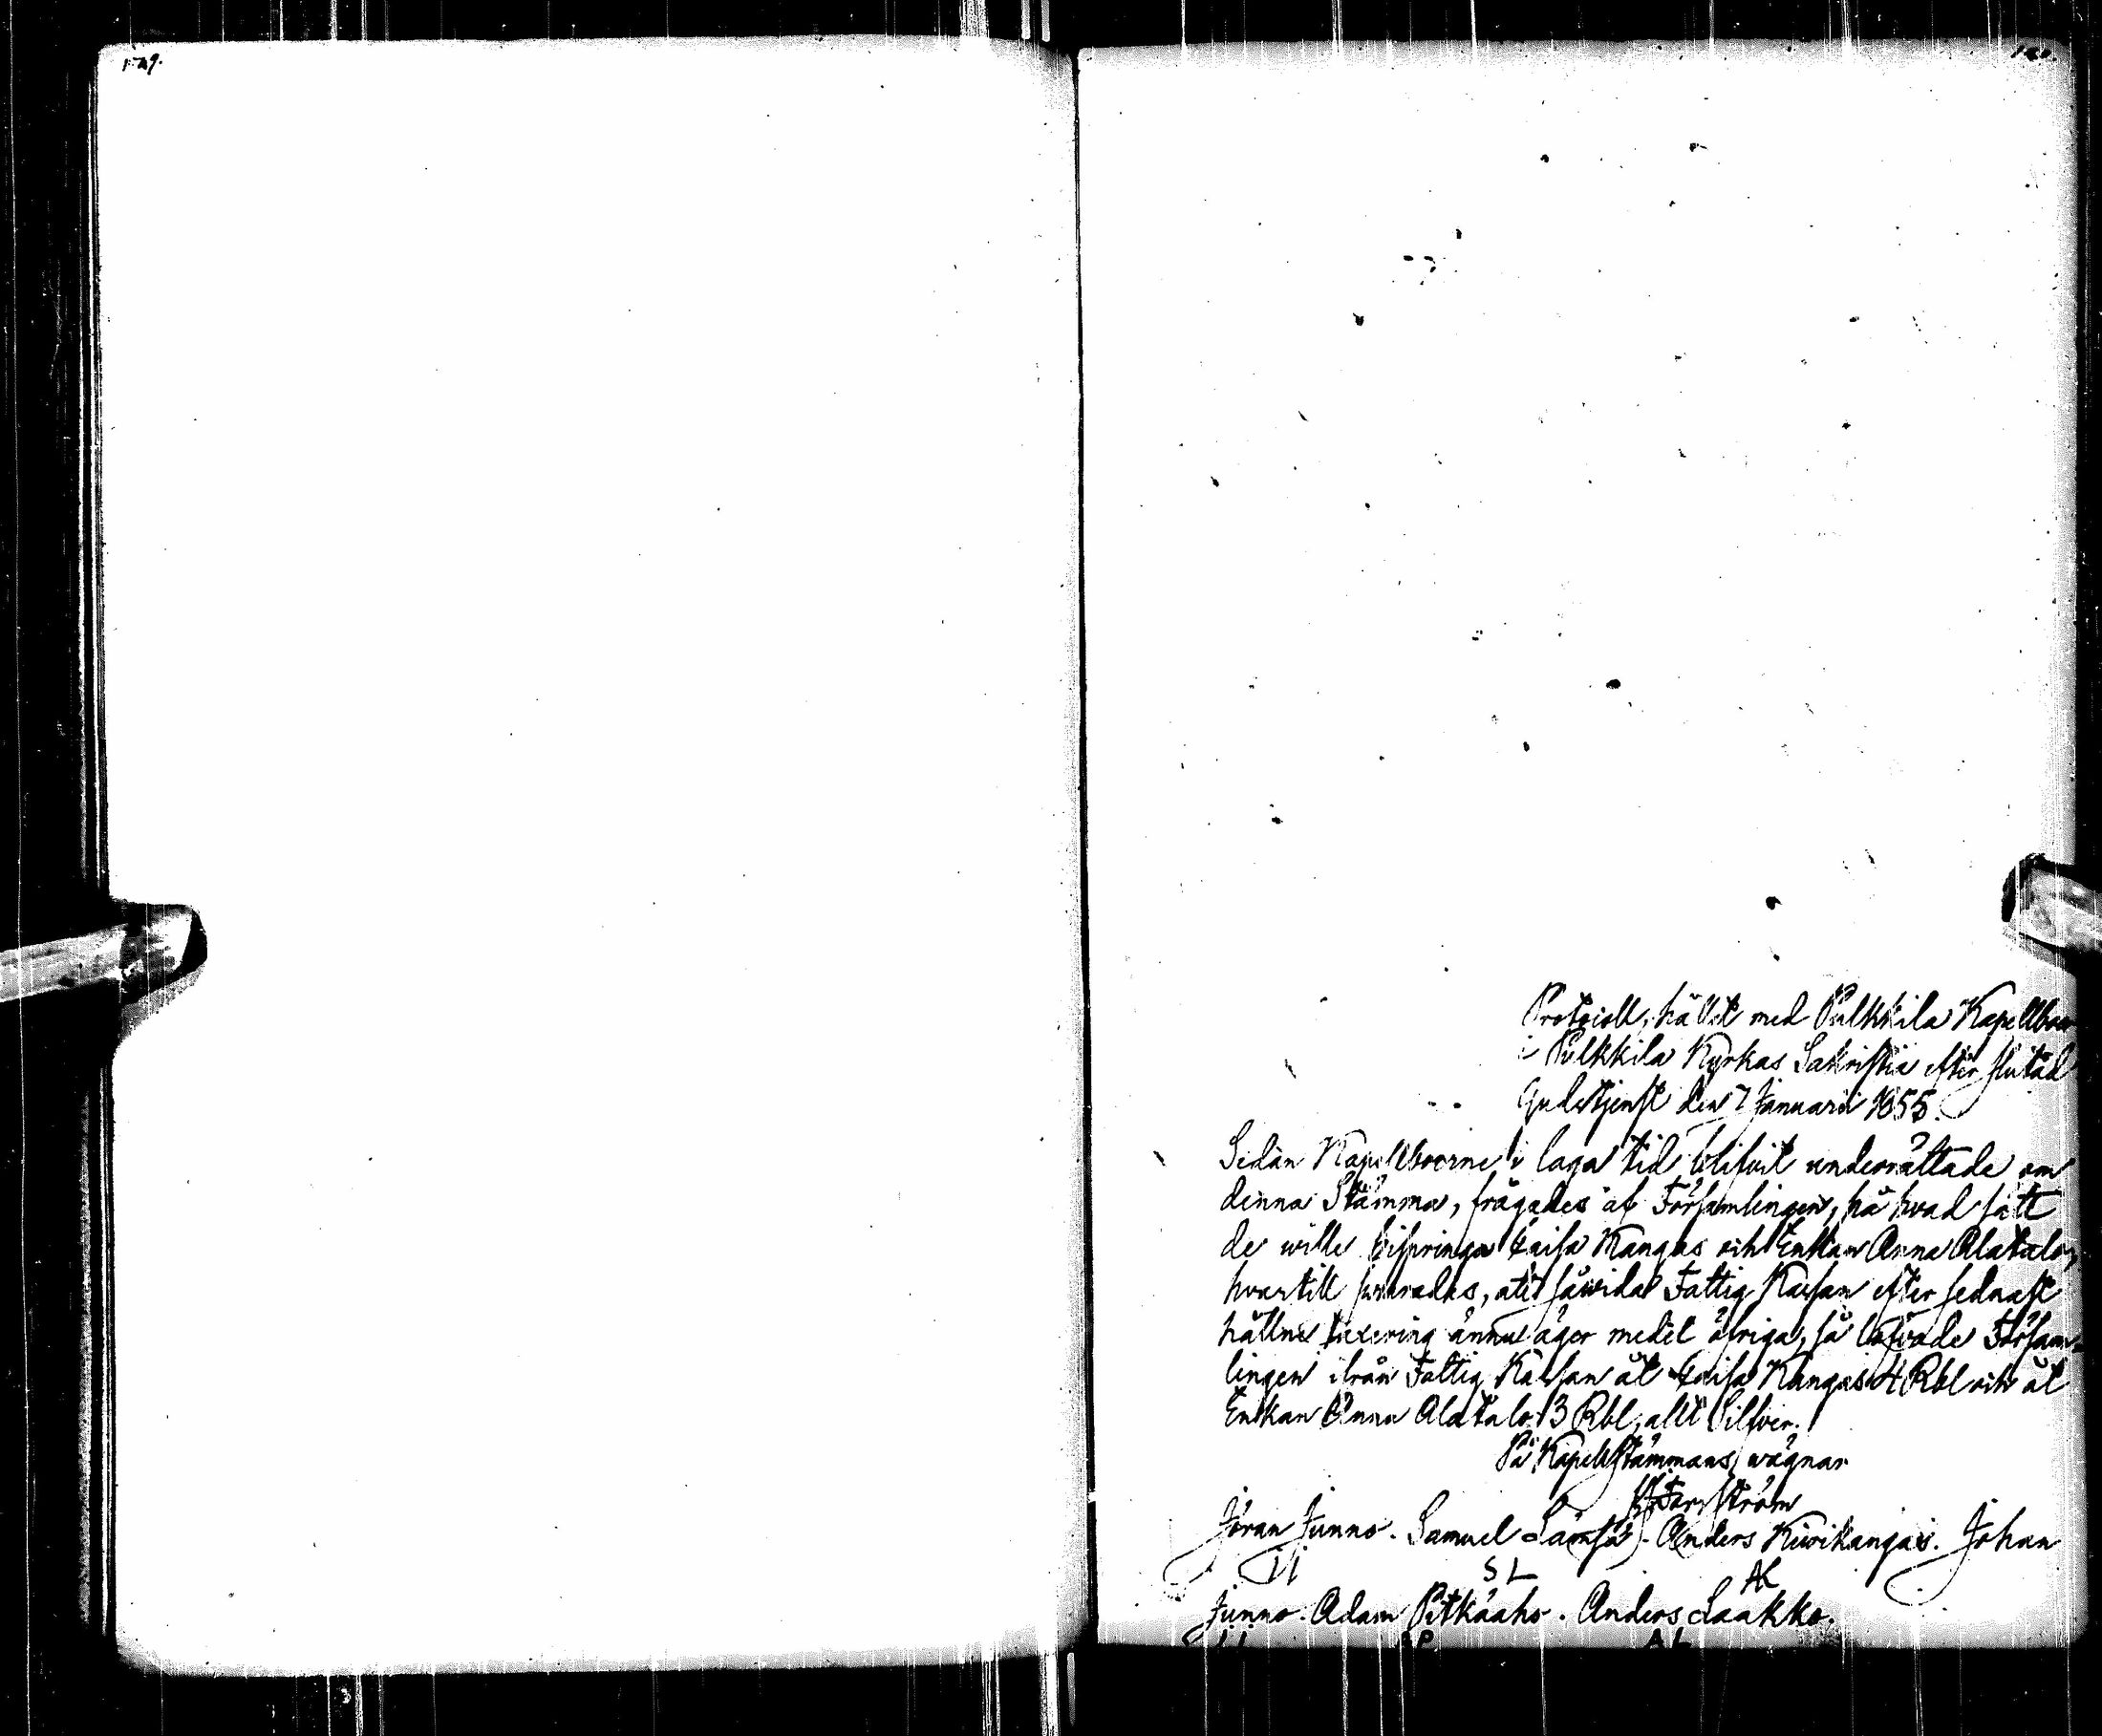 129.
Protocoll, hållit med Pulkkila Kapellboer
i Pulkkila Kyrkas Sakristia efter slutad
Gudstjenst den 7 Januarii 1855.
Sedan Kapellboerne i laga tid blifvit underrättade om
denna Stämma, frågades af Församlingen, på hvad sätt
de wille bispringa Caisa Kangas och Enkan Anna Alatalo,
hvartill swarades, att såwida Fattig Kassan efter sednast
hållne taxering ännu äger medel öfriga, så lofvade Försam-
lingen ifrån Fattig Kassan åt Caisa Kangas 4 Rbl och åt
Enkan Anna Alatalo 3 Rbl, allt Silfver.
På Kapellstämmans wägnar
Forsström
Jöran Junno. Samuel Lämsä. Anders Kiwikangas. Johan
JJ SL AK
Junno. Adam Pitkäaho. Anders Laakko.
JJ AP AL